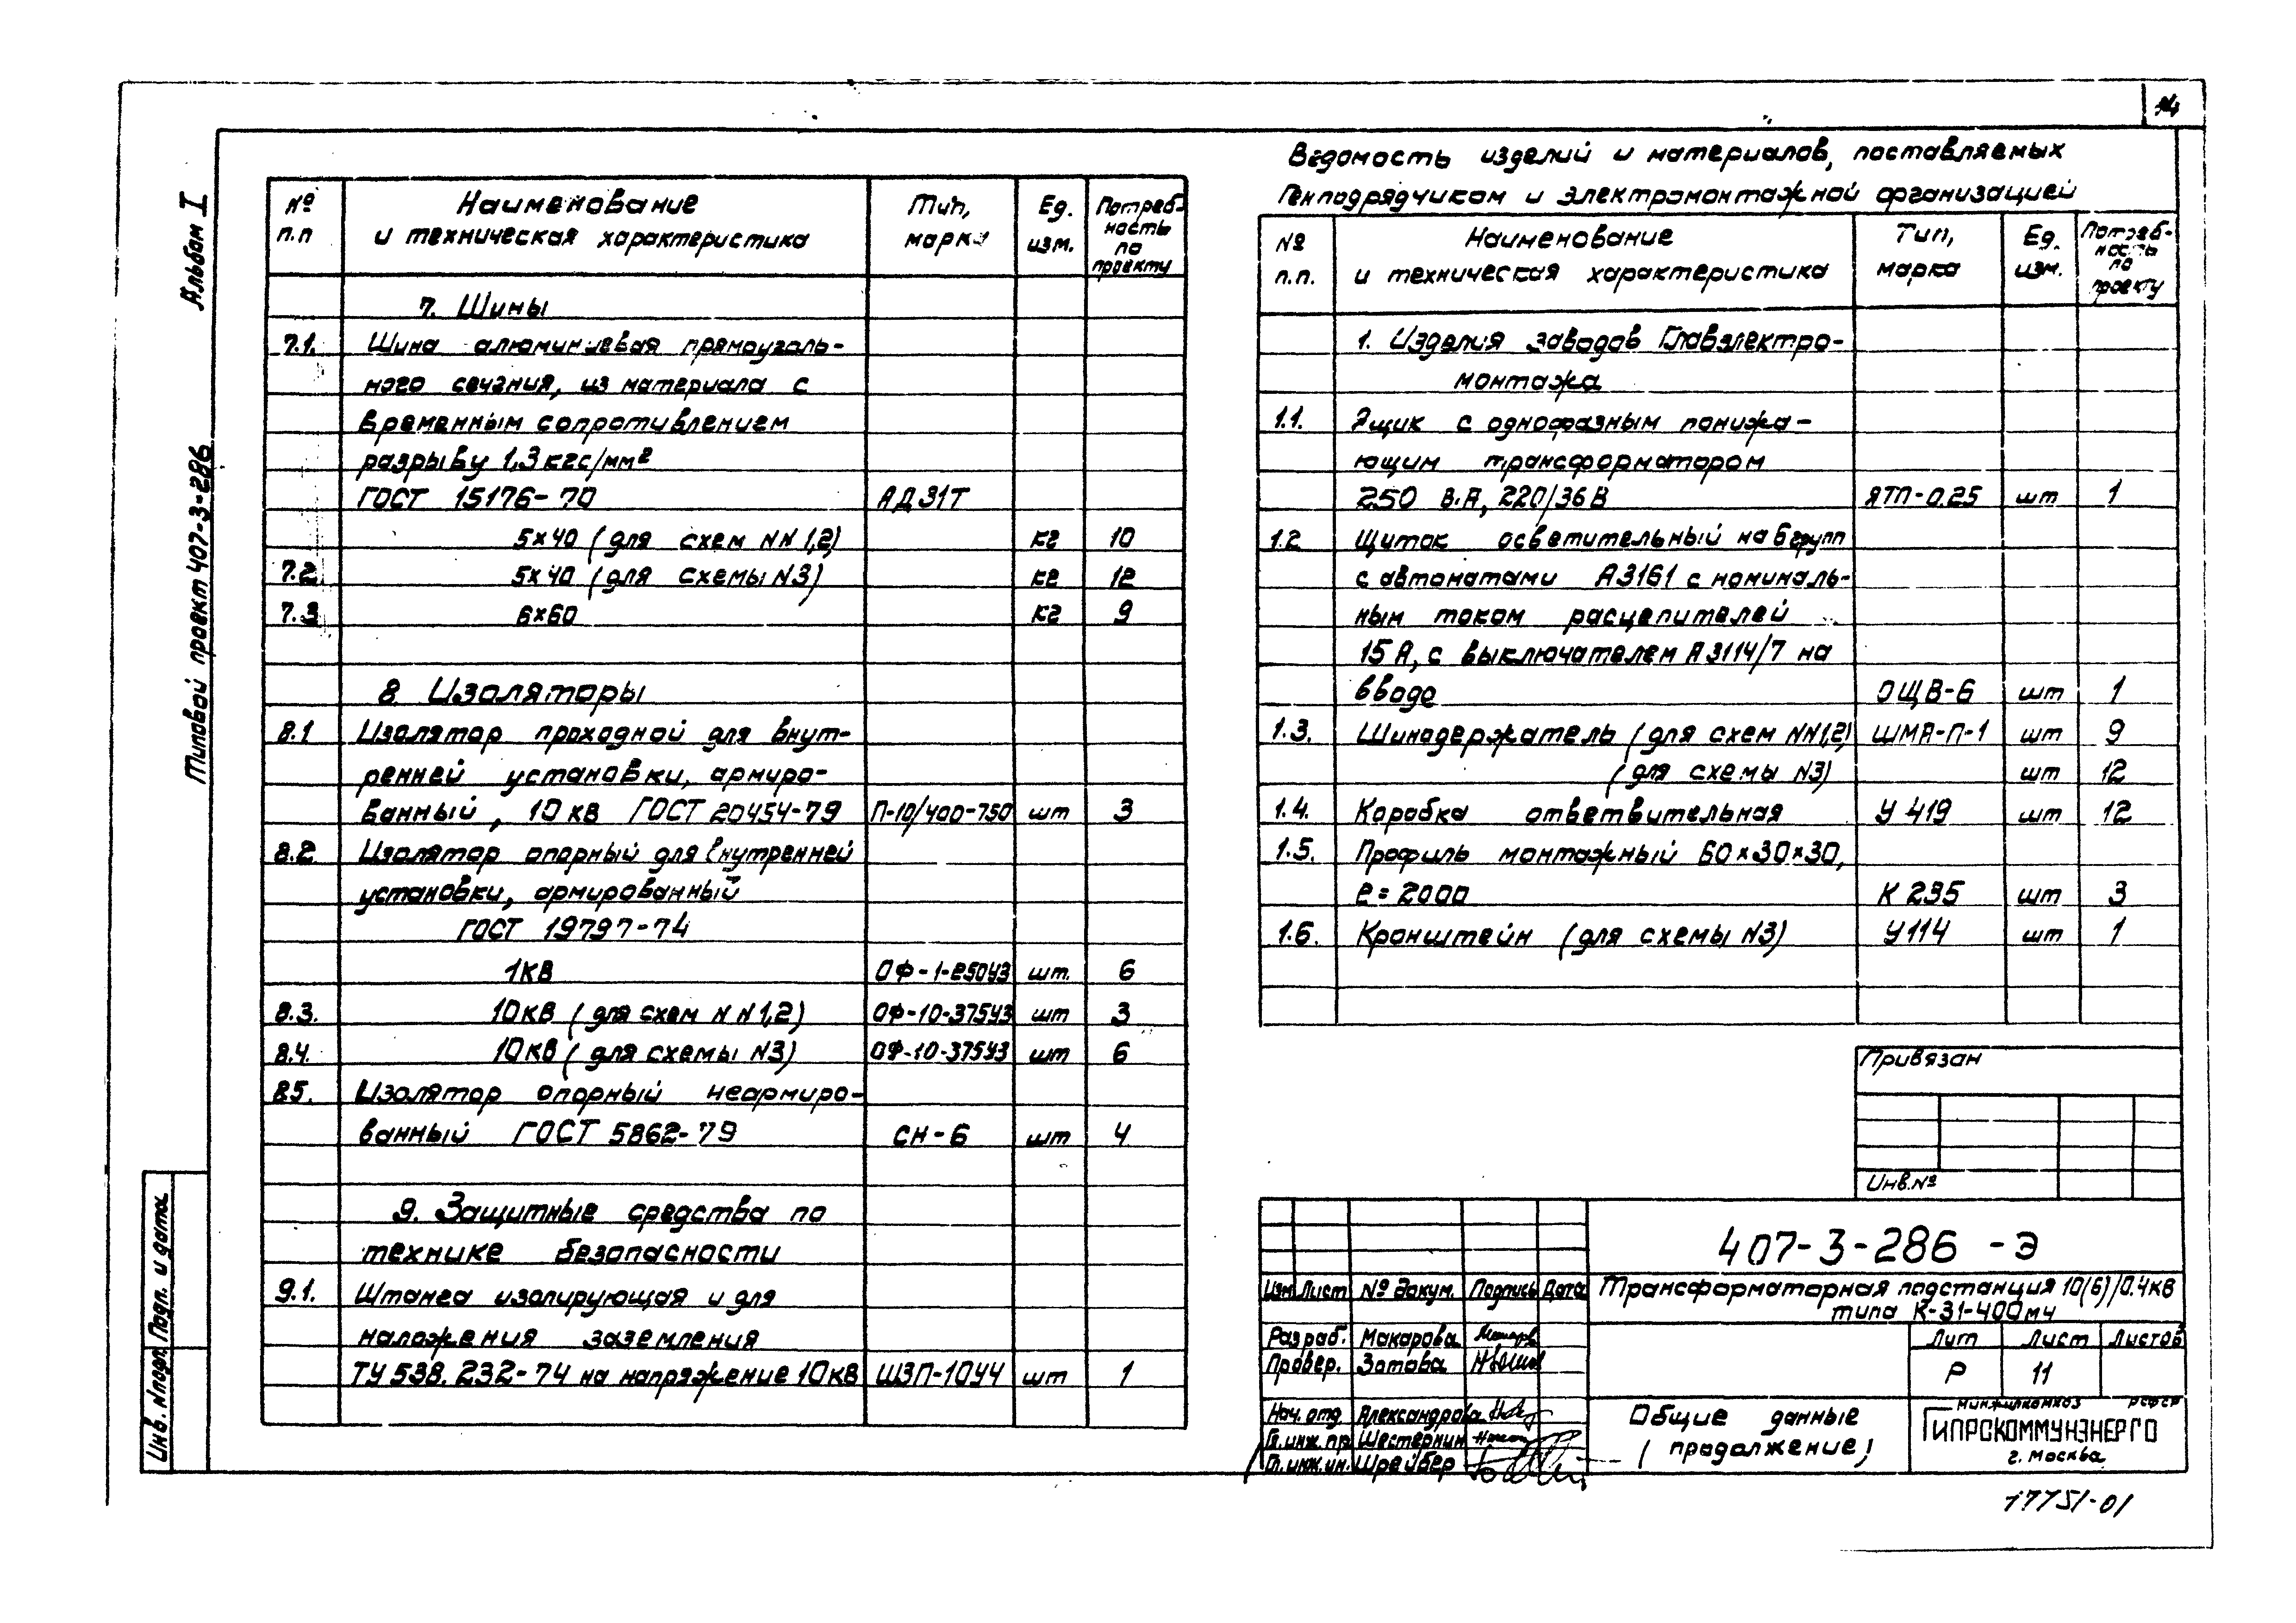 14
Альбом I
Типовой проект 407-3-286
№ п.п Наименование и техническая характеристика Тип, марка Ед. изм. Потреб-ность по проекту
7. Шины
7.1. Шина алюминиевая прямоуголь-
ного сечения, из материала с
временным сопротивлением
разрыву 1,3 кгс/мм²
ГОСТ 15176-70 АД31Т
5×40 (для схем NN 1,2) кг 10
7.2 5×40 (для схемы N3) кг 12
7.3 6×60 кг 9
8 Изоляторы
8.1 Изолятор проходной для внут-
ренней установки, армиро-
ванный, 10 кв ГОСТ 20454-79 П-10/400-750 шт 3
8.2 Изолятор опорный для внутренней
установки, армированный
ГОСТ 19797-74
1кв ОФ-1-250У3 шт. 6
8.3. 10кв (для схем NN1,2) ОФ-10-375У3 шт 3
8.4. 10кв (для схемы N3) ОФ-10-375У3 шт 6
8.5. Изолятор опорный неармиро-
ванный ГОСТ 5862-79 СН-6 шт 4
9. Защитные средства по
технике безопасности
9.1. Штанга изолирующая и для
наложения заземления
ТУ 538.232-74 на напряжение 10кв ШЗП-10У4 шт 1
Ведомость изделий и материалов, поставляемых
Генподрядчиком и электромонтажной организацией
№ п.п. Наименование и техническая характеристика Тип, марка Ед. изм. Потреб-ность по проекту
1. Изделия заводов Главэлектро-
монтажа
1.1. Ящик с однофазным понижа-
ющим трансформатором
250 В.А, 220/36В ЯТП-0.25 шт 1
1.2 Щиток осветительный на 6 групп
с автоматами А3161 с номиналь-
ным током расцепителей
15А, с выключателем А3114/7 на
вводе ОЩВ-6 шт 1
1.3. Шинодержатель (для схем NN1,2) ШМА-П-1 шт 9
(для схемы N3) шт 12
1.4. Коробка ответвительная У 419 шт 12
1.5. Профиль монтажный 60×30×30,
ℓ=2000 К 235 шт 3
1.6. Кронштейн (для схемы N3) У114 шт 1
Привязан
Инв.№
407-3-286 -Э
Изм Лист № докум. Подпись Дата
Трансформаторная подстанция 10(6)/0.4кв
типа К-31-400мч
Разраб. Макарова
Провер. Зотова
Лит Лист Листов
Р 11
Нач. отд Александрова
Гл.инж.пр Шестернин
Гл.инж.ин. Шрейбер
Общие данные
(продолжение)
Минжилкомхоз РСФСР
ГИПРОКОММУНЭНЕРГО
г. Москва
Инв. N подл. Подп. и дата
17751-01